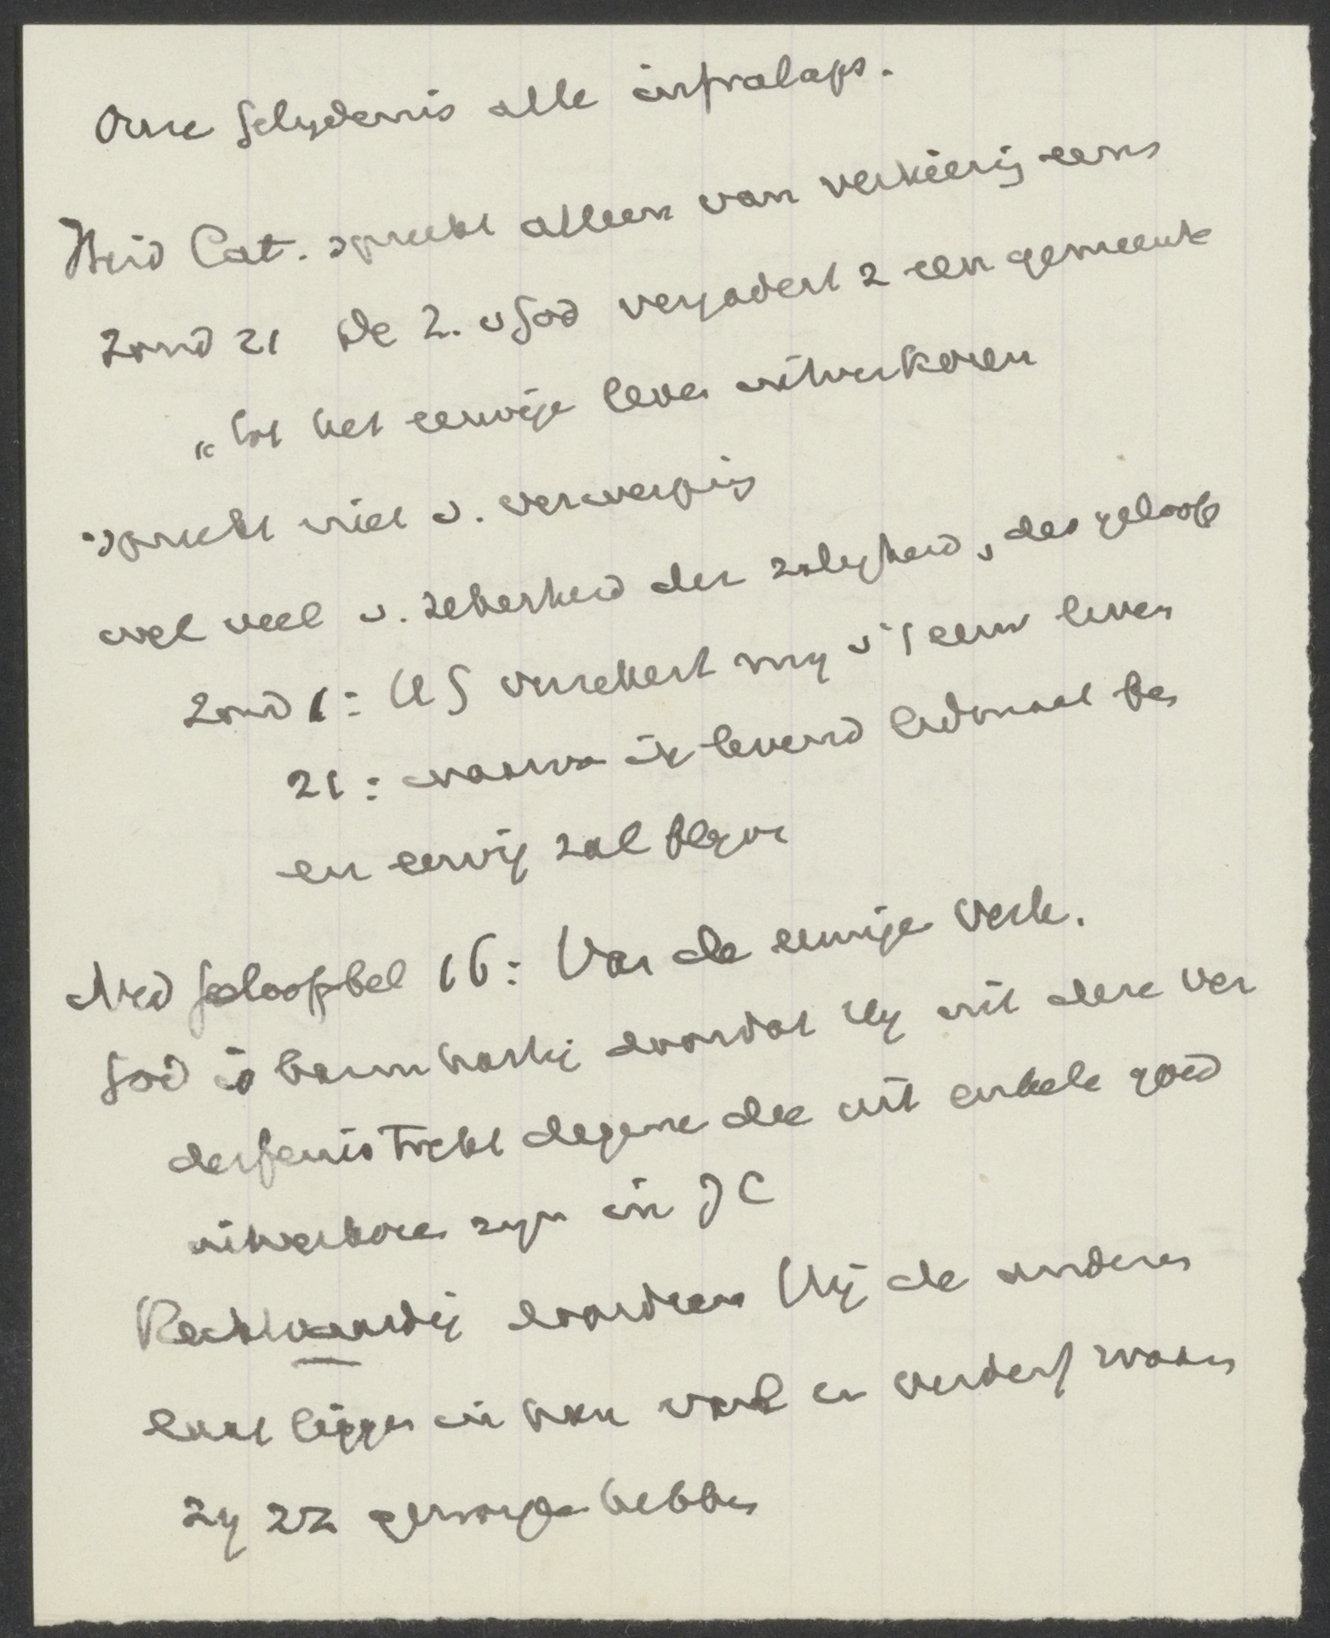 Onze belydenis alle infralaps.
Heid Cat. spreekt alleen van verkiezig eens
Zond 21 De Z. v God vergadert z een gemeente
„tot het eeuwige leven uitverkoren
spreekt niet v. verwerping
wel veel v. zekerheid der zaligheid, des geloofs
Zond 1: HG verzekert my v't eeuw leven
21: waarva ik levend lidmaat ben
en eeuwig zal blijven
Ned Geloofsbel 16: Van de eeuwige Verk.
God is barmhartig doordat Hy uit deze ver
derfenis trekt degene die uit enkele goed
uitverkoren zyn in JC
Rechtvaardig doordien Hij de anderen
laat liggen in hun val en verderf waarin
zy zz geworpen hebben